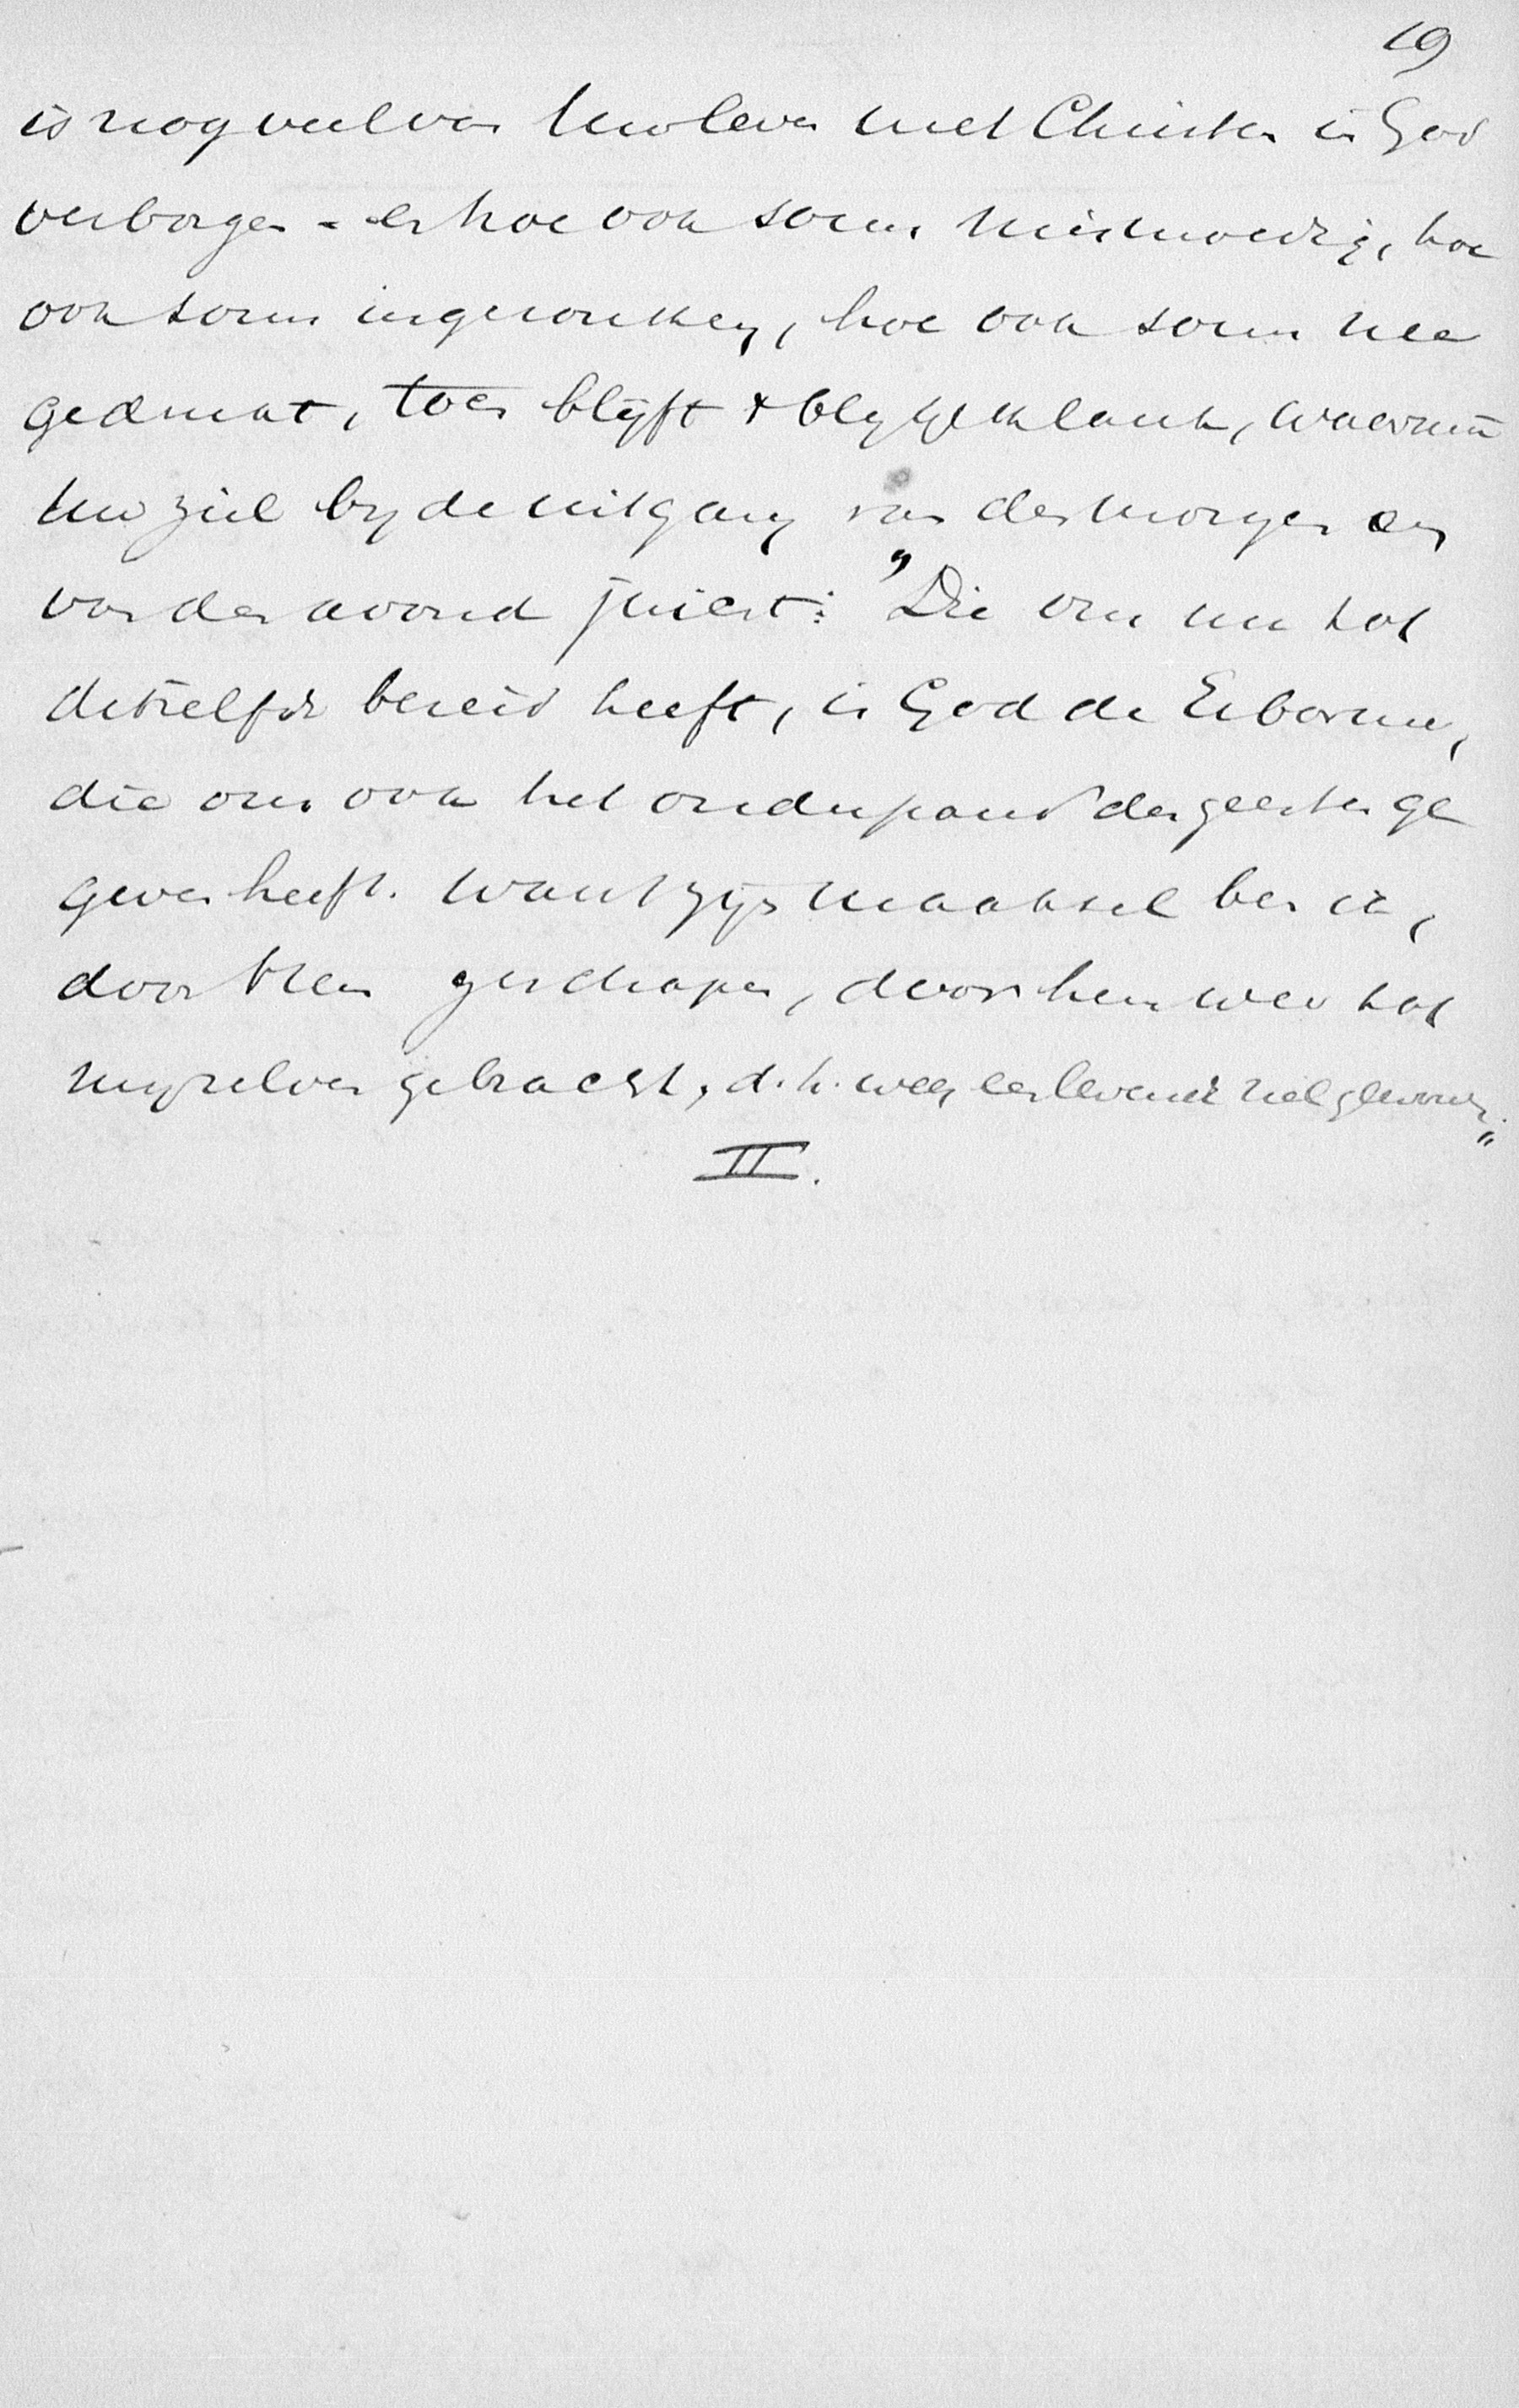 19
is nog veel van Uw leven met Christus in God
verborgen – en hoe ook soms mismoedig, hoe
ook soms ingezonken, hoe ook soms nee
gedrukt, toch blijft + bly klank, waarmeê
Uw ziel by de uitgang van den morgen en
van den avond juicht: "Die ons nu tot
ditzelfde bereid heeft, is God de Erbarmer,
die ons ook het onderpand des geestes ge
geven heeft. Want zijn maaksel ben ik,
door Hem geschapen, door hem weer tot
mijzelven gebracht, d.h. weer een levende ziel geworden."
II.